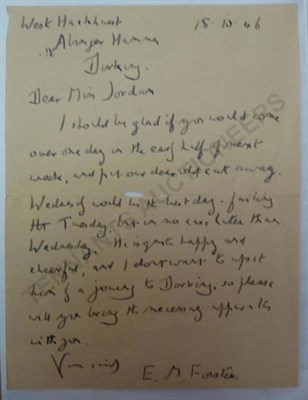 West Hackhurst
Abinger Hammer
Dorking.
18-10-46
Dear Miss Jordan
I should be glad if you would come
over one day in the early half of next
week, and put our dear old cat away.
Wednesday would be the best day - failing
that Tuesday, but in no case later than
Wednesday. He is quite happy and
cheerful, and I don't want to upset
him by a journey to Dorking, so please
will you bring the necessary apparatus
with you.
Yours sincly
E. M. Forster
TENNANTS AUCTIONEERS